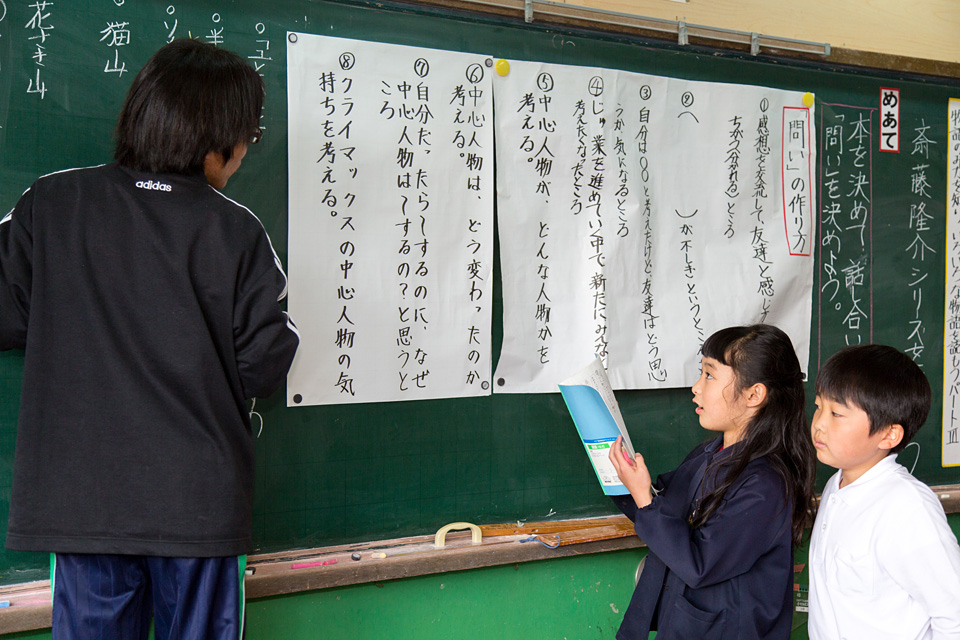 斎藤隆介シリーズを
めあて
本を決めて話し合い
「問い」を決めよう。
「問い」の作り方
①感想を交流して友達と感じ
ちがう(つかれる)ところ
②(　　)が不しぎというところ
③自分は〇〇と考えたけど、友達はどう思
うか気になるところ
④じゅ業を進めていく中で新たにみんな
考えたくなったところ
⑤中心人物が、どんな人物かを
考える。
⑥中心人物は、どう変わったのか
考える。
⑦自分だったら〜するのに、なぜ
中心人物は〜するの?と思うと
ころ
⑧クライマックスの中心人物の気
持ちを考える。
猫山
花さき山
adidas